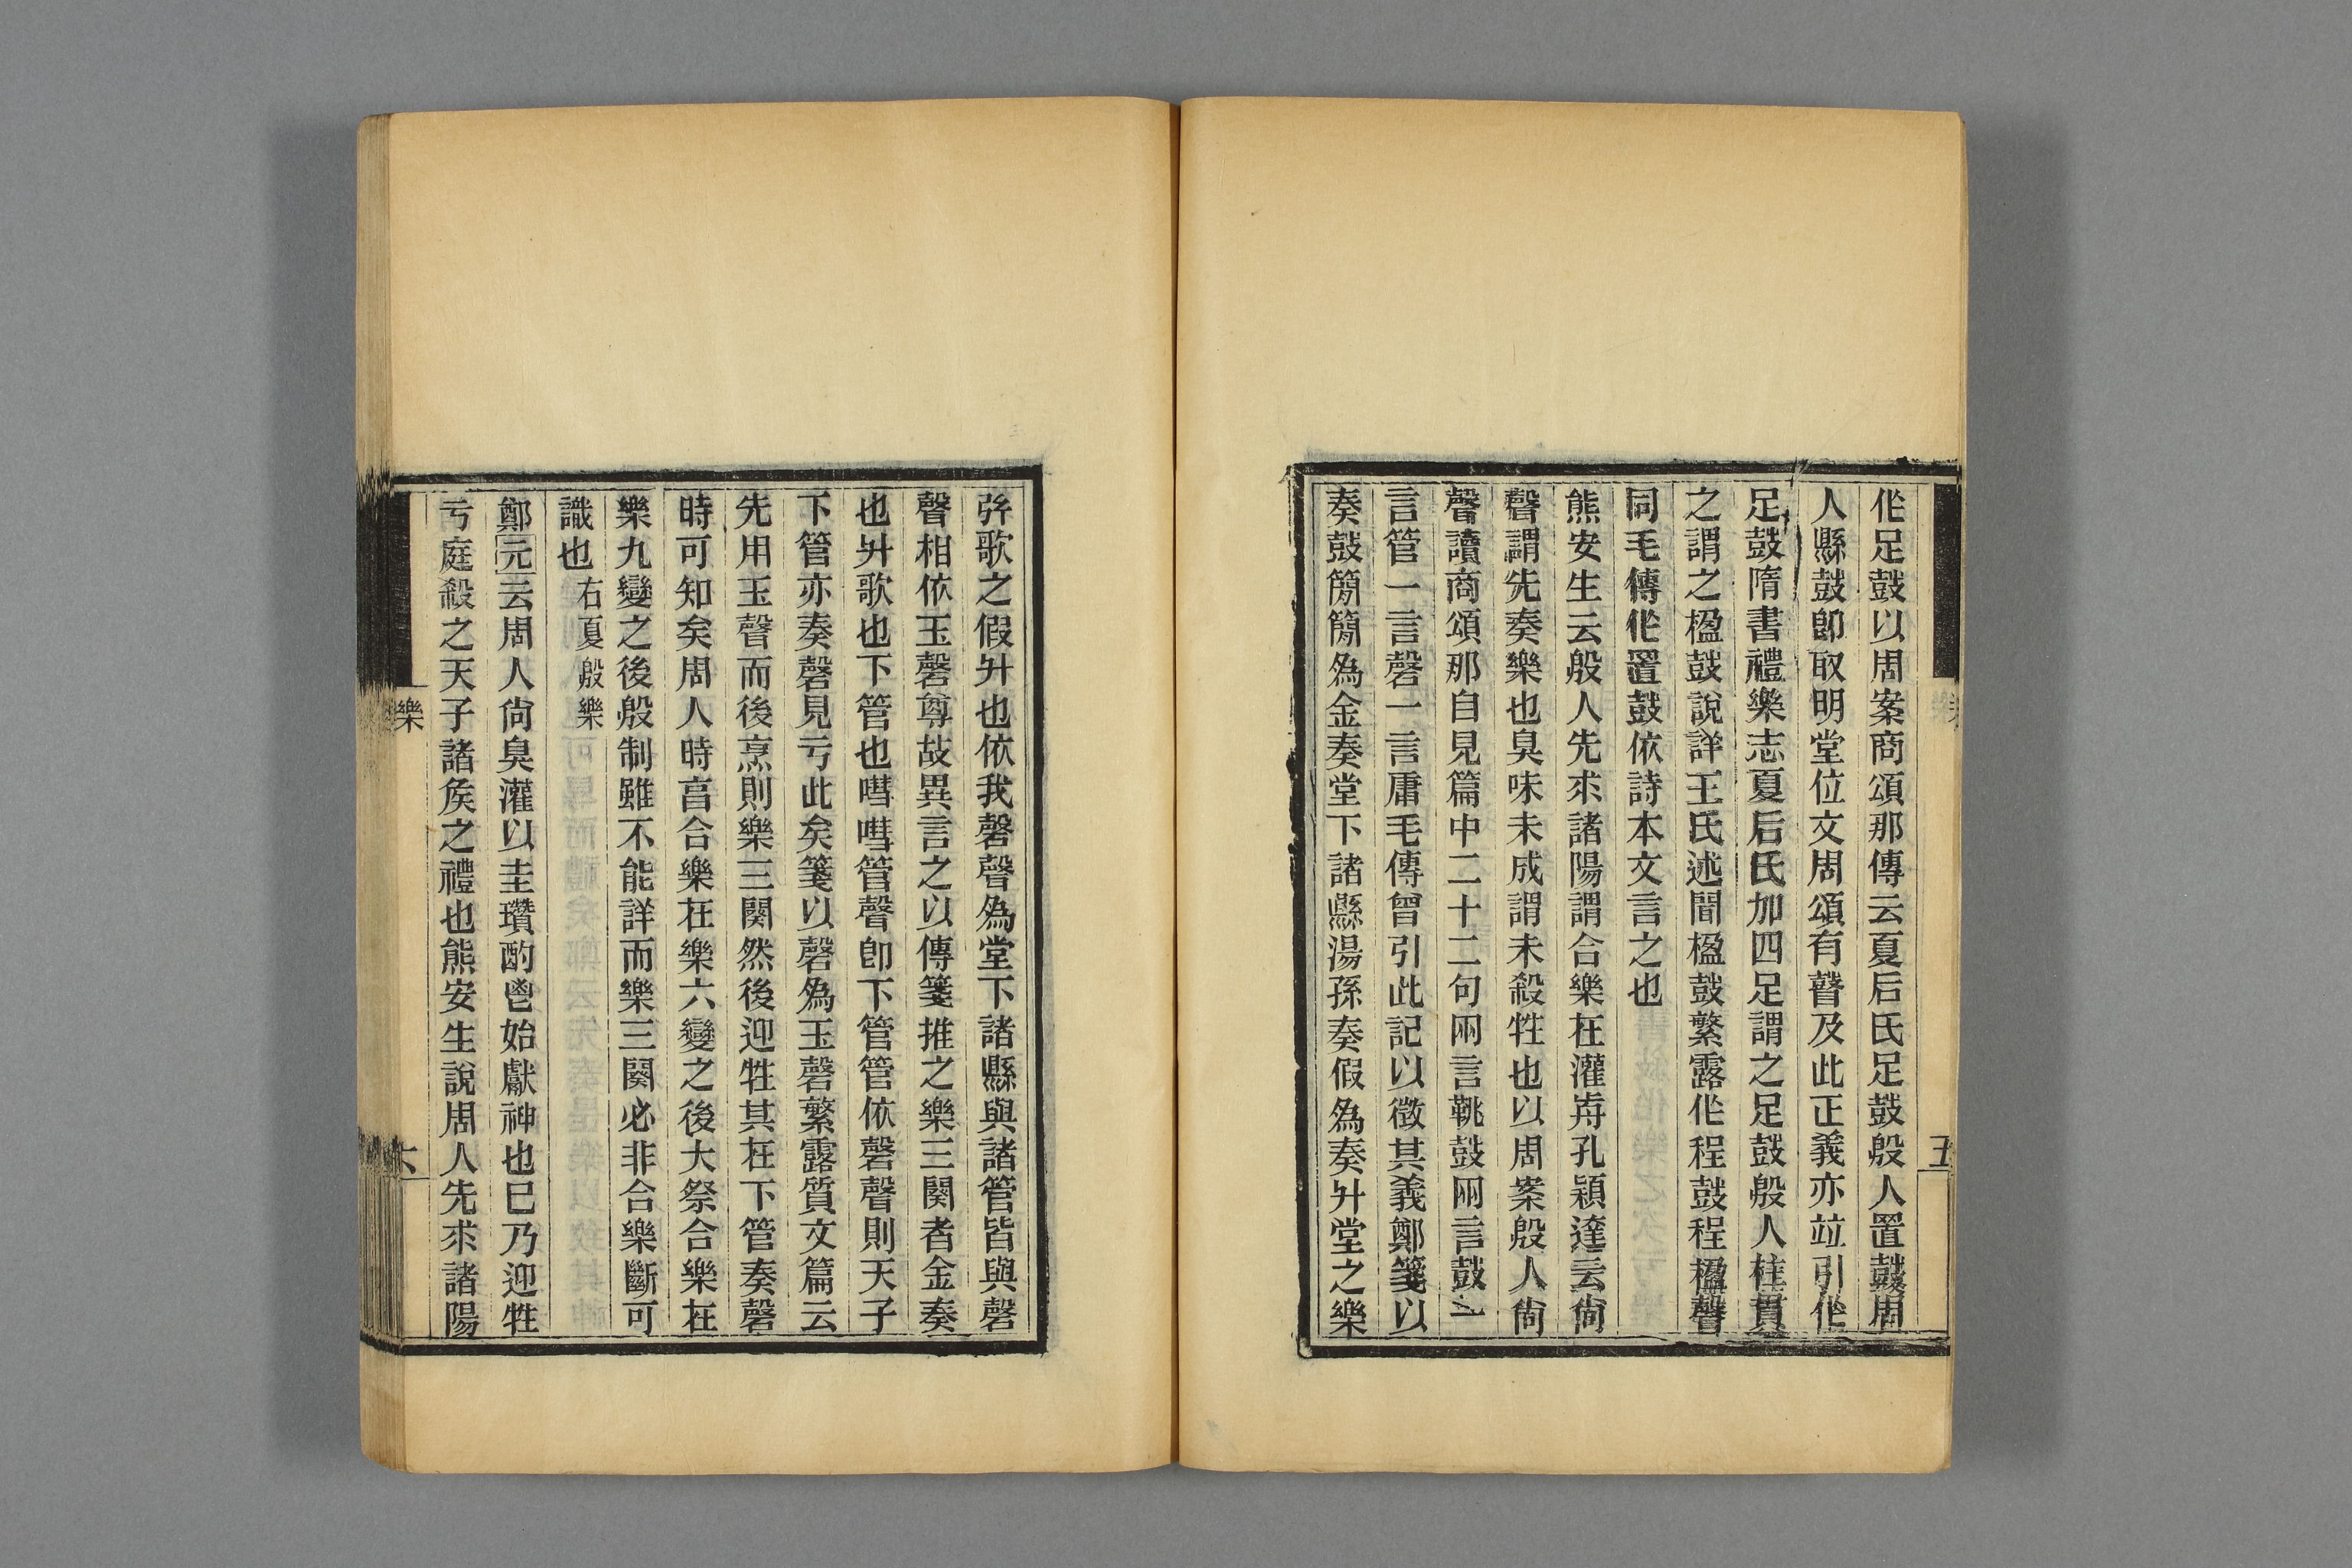 五
作足鼓以周案商頌那傳云夏后氏足鼓殷人置鼓周
人縣鼓卽取明堂位文周頌有瞽及此正義亦竝引作
足鼓隋書禮樂志夏后氏加四足謂之足鼓殷人柱貫
之謂之楹鼓說詳王氏述聞楹鼓繁露作程鼓程楹聲
同毛傳作置鼓依詩本文言之也
熊安生云殷人先求諸陽謂合樂在灌歬孔穎達云尙
聲謂先奏樂也臭味未成謂未殺牲也以周案殷人尙
聲讀商頌那自見篇中二十二句兩言鞉鼓兩言鼓之
言管一言磬一言庸毛傳曾引此記以徵其義鄭箋以
奏鼓簡簡爲金奏堂下諸縣湯孫奏假爲奏升堂之樂
弦歌之假升也依我磬聲爲堂下諸縣與諸管皆與磬
聲相依玉磬尊故異言之以傳箋推之樂三闋者金奏
也升歌也下管也嘒嘒管聲卽下管管依磬聲則天子
下管亦奏磬見亏此矣箋以磬爲玉磬繁露質文篇云
先用玉聲而後烹則樂三闋然後迎牲其在下管奏磬
時可知矣周人時亯合樂在樂六變之後大祭合樂在
樂九變之後殷制雖不能詳而樂三闋必非合樂斷可
識也右夏殷樂
鄭元云周人尙臭灌以圭瓚酌鬯始獻神也已乃迎牲
亏庭殺之天子諸矦之禮也熊安生說周人先求諸陽
樂
六